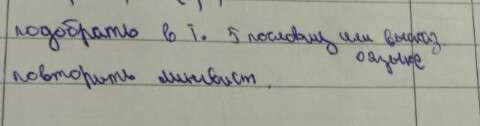 подобрать в т. 5 пословиц или высказ.
о языке
повторить лингвист.